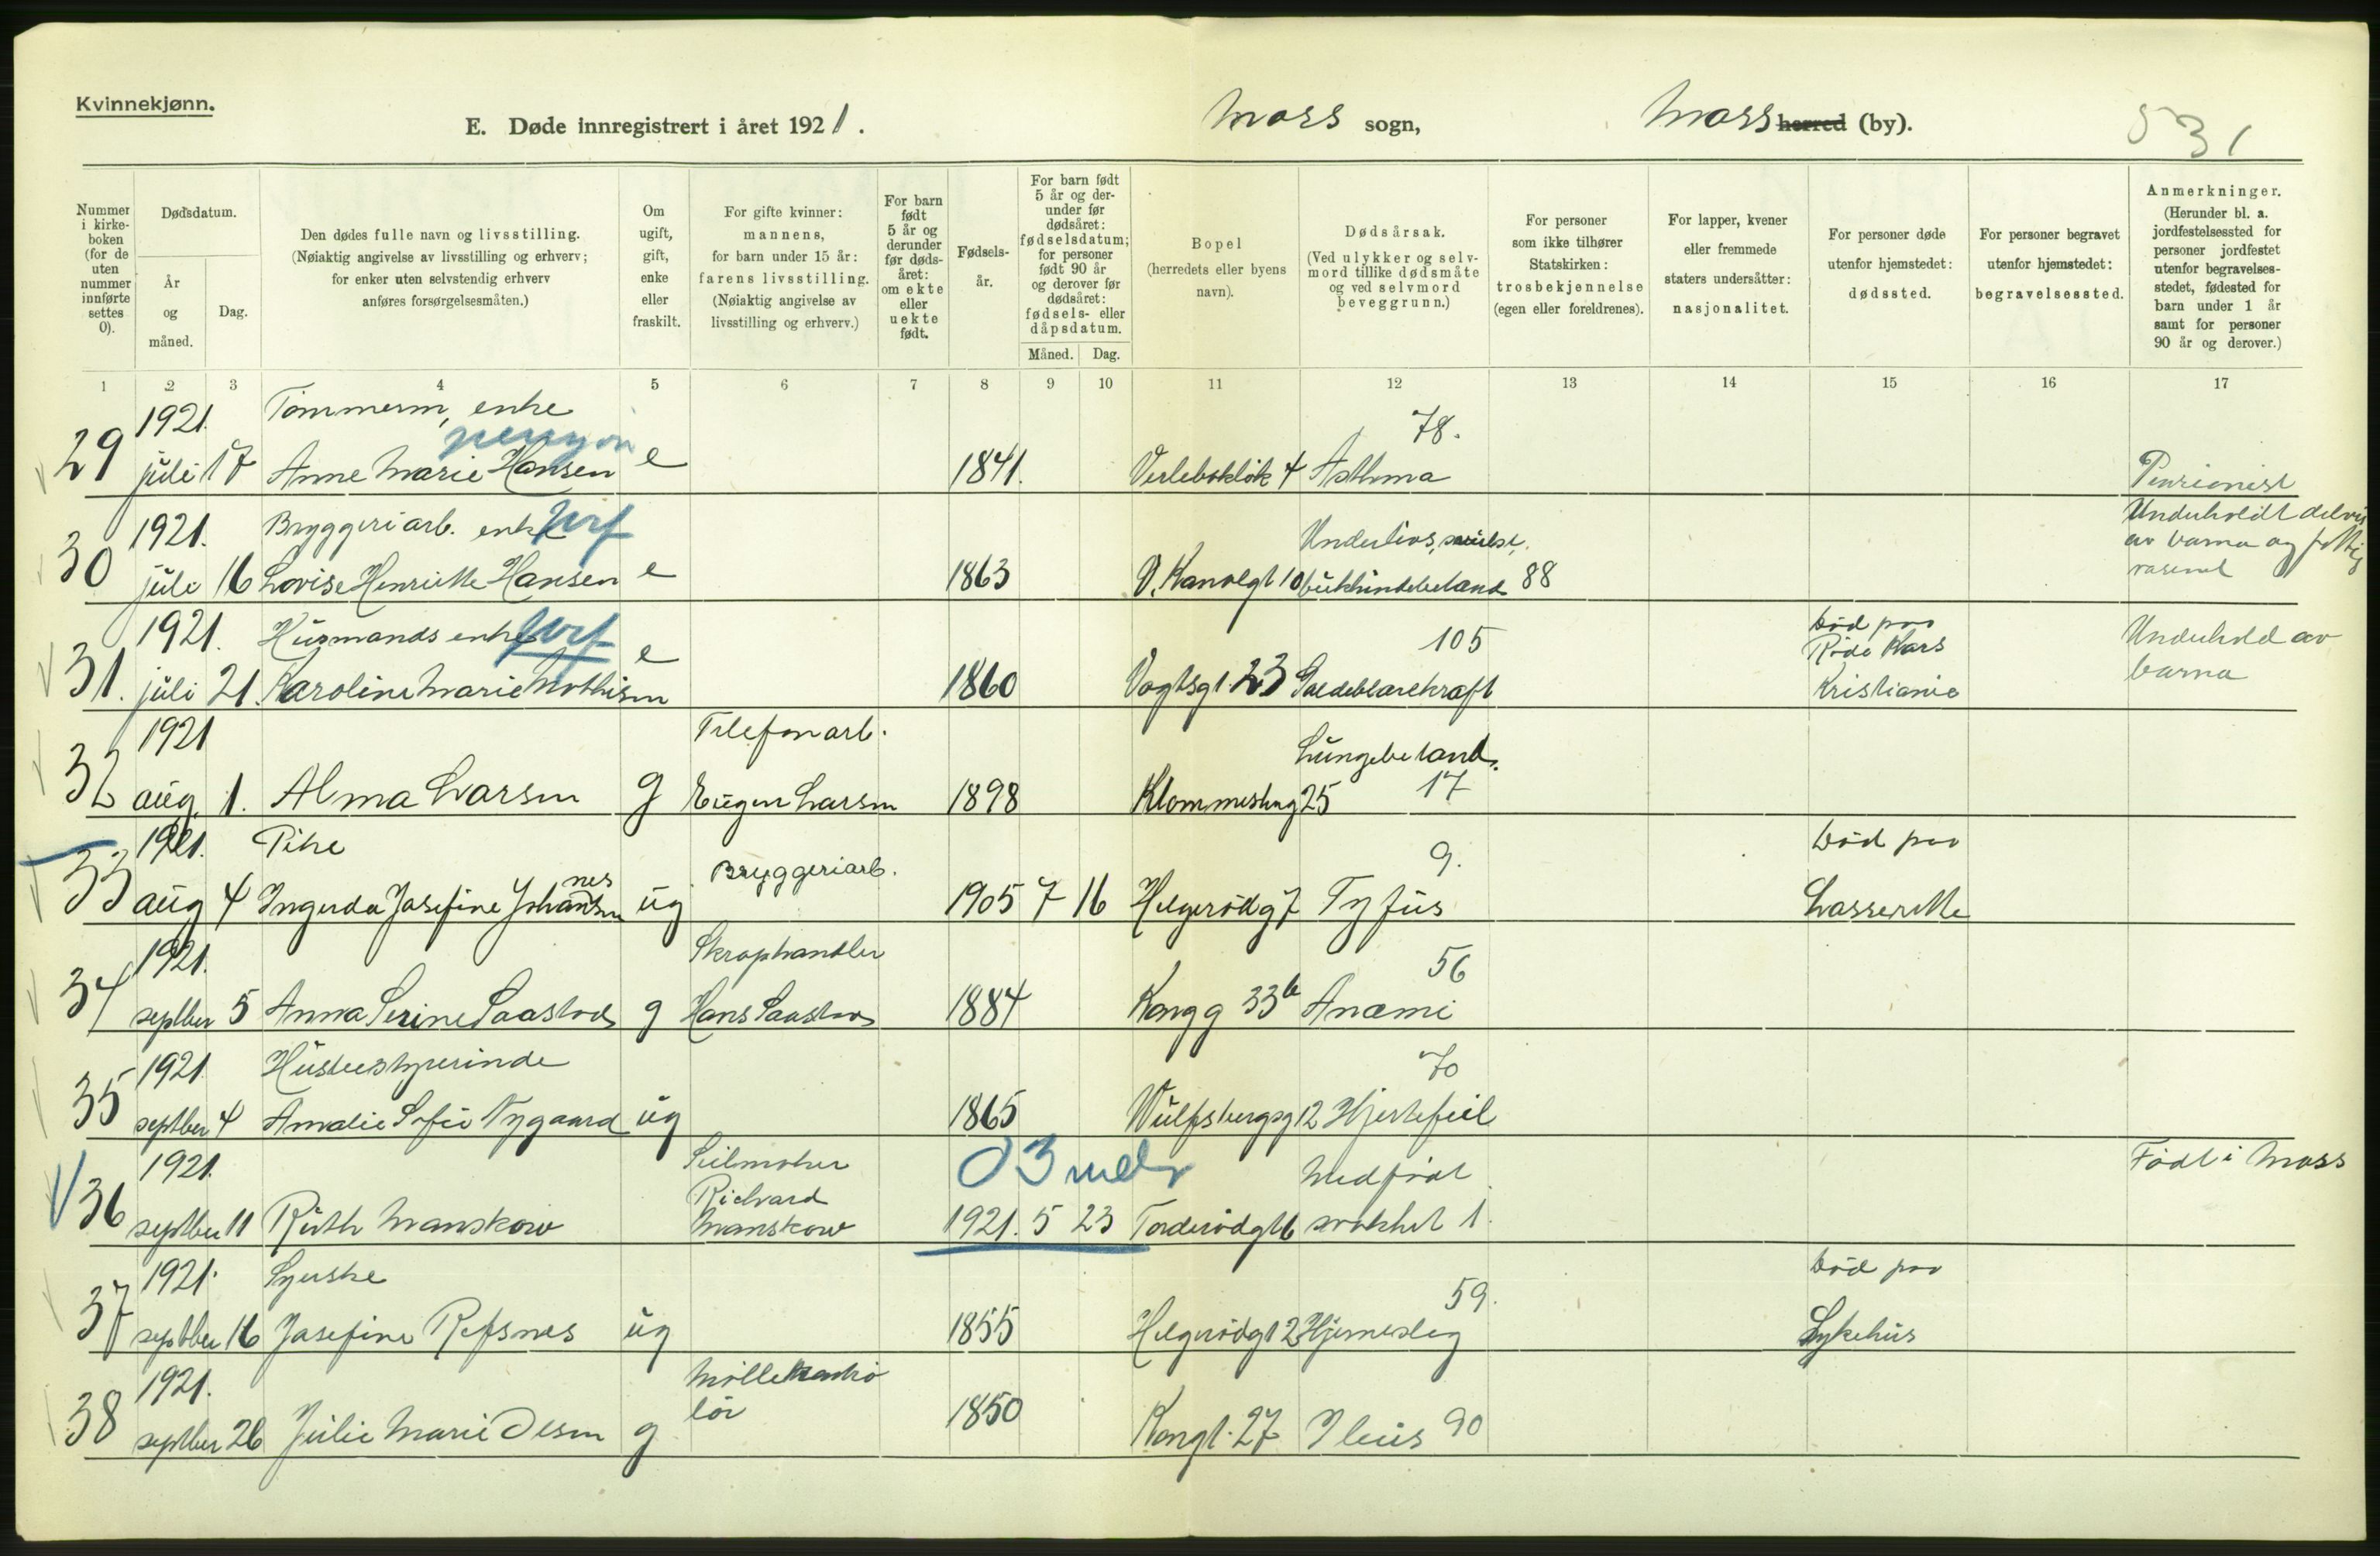 Kvinnekjønn.
E. Døde innregistrert i året 1921.
Moss sogn,
Moss herred (by).
531
Nummer i kirke-boken (for de uten nummer innførte settes 0).
Dødsdatum.
År og måned.
Dag.
Den dødes fulle navn og livsstilling. (Nøiaktig angivelse av livsstilling og erhverv; for enker uten selvstendig erhverv anføres forsørgelsesmåten.)
Om ugift, gift, enke eller fraskilt.
For gifte kvinner: mannens, for barn under 15 år: farens livsstilling. (Nøiaktig angivelse av livsstilling og erhverv.)
For barn født 5 år og derunder før døds-året: om ekte eller uekte født.
Fødsels-år.
For barn født 5 år og der-under før dødsåret: fødselsdatum; for personer født 90 år og derover før dødsåret: fødsels- eller dåpsdatum.
Måned.
Dag.
Bopel (herredets eller byens navn).
Dødsårsak. (Ved ulykker og selv-mord tillike dødsmåte og ved selvmord beveggrunn.)
For personer som ikke tilhører Statskirken: trosbekjennelse (egen eller foreldrenes).
For lapper, kvener eller fremmede staters undersåtter: nasjonalitet.
For personer døde utenfor hjemstedet: dødssted.
For personer begravet utenfor hjemstedet: begravelsessted.
Anmerkninger. (Herunder bl. a. jordfestelsessted for personer jordfestet utenfor begravelses-stedet, fødested for barn under 1 år samt for personer 90 år og derover.)
1 2 3 4 5 6 7 8 9 10 11 12 13 14 15 16 17
1921. Tømmerm, enke 78.
pensjon
29 juli 17 Anne Marie Hansen e 1841. 4 Asthma Pensionist
1921. Bryggeriarb. enke Underlivs Underholdt delvis
av barna og fattig
30 juli 16 Lovise Henriette Hansen e 1863 V. Kanalgt 10 88 væsenet
1921. Husmands enke 105 Død paa Underhold av
Røde Kors barna
31. juli 21. Karoline Marie Mathisen e 1860 Vogtsgt. 23 Galdeblærekraft Kristiania
1921 Telefonarb. Lungebetænd.
32 aug. 1. Alma Larsen g Eugen Larsen 1898 25 17
1921. Pike Bryggeriarb. 9. Død paa
33 aug 4 Ingerda Josefine Johannesen ug 1905 7 16 Helgerødg 7 Tyfus Lasserette
1921. Skraphandler 56
34 septber 5 Anna Serine Saastad g Hans Saastad 1884 Kongg 33b Anæmi
1921 Husbestyrerinde 70
35 septber 4 Amalie Sofie Nygaard ug 1865 Wulfsbergsg 12 Hjertefeil
1921. Seilmaker 03 mdr Medfødt Født i Moss
Richard
36 septber 11 Ruth Manskow Manskow 1921. 5 23 Torderødgt 6 svakhet 1.
1921. Syerske 59. Død paa
37 septber 16 Josefine Refsnes ug 1855 Helgerødgt 2 Hjerneslag Sykehus
1921. Møllekontro
lør
38 septber 26 Julie Marie Olsen g 1850 Kongt. 27 Ileus 90